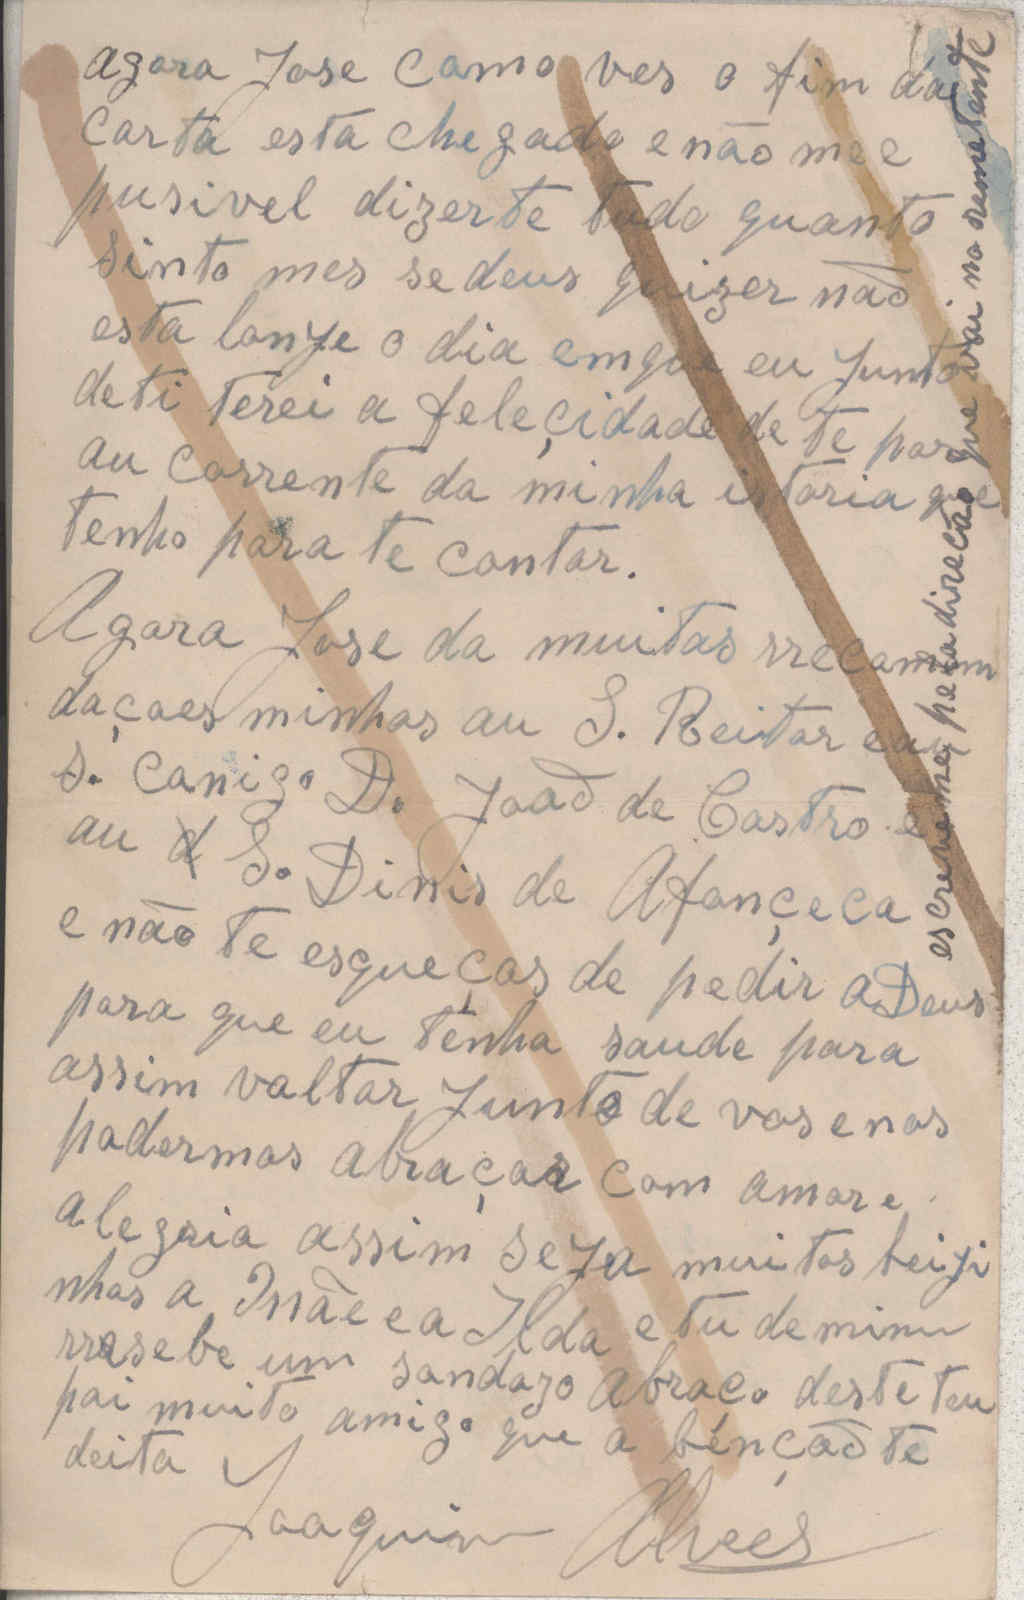 agora Jose como ves o fim da
carta esta chegado e não me e
pusivel dizerte tudo quanto
sinto mes se deus quizer não
esta lonje o dia emque eu Junto
deti terei a feleçidade de te por
au corrente da minha istoria que
tenho para te contar.
Agora Jose da muitas rrecomem
daçoes minhas au S. Reitor e au
S. Conigo D. Joaõ de Castro e
au S. Dinis de Afonçeca
e não te esqueças de pedir a Deus
para que eu tenha saude para
assim voltar Junto de vos e nos
podermos abraçar com amor e
alegria assim seja muitos beiji
nhos a Mãe e a Ilda e tu de mim
rresebe um sandozo abraço deste teu
pai muito amigo que a bénçaõ te
deita
Joaquim Alves
escreveme pela direcão que vai no remetente